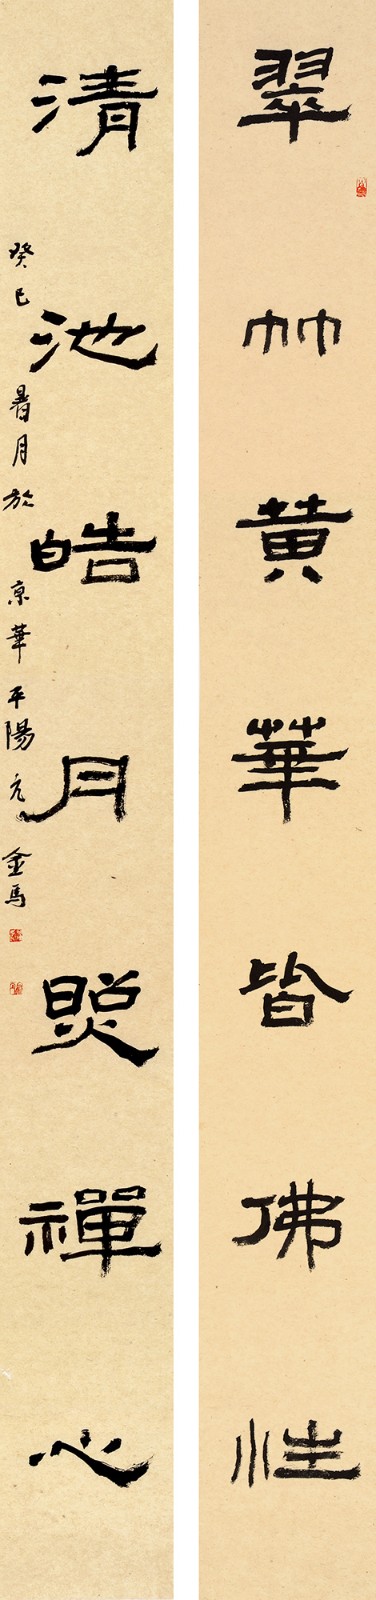 翠竹黄華皆佛性
清池皓月照禪心
癸巳暑月於京華平陽亢金馬